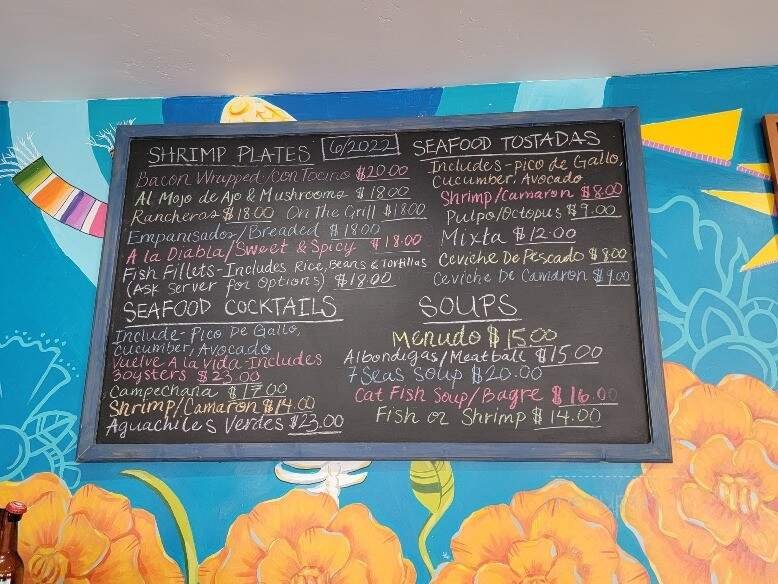 SHRIMP PLATES 6/2022
Bacon Wrapped/Con Tocino $20.00
Al Mojo de Ajo & Mushrooms $18.00
Rancheros $18.00 On The Grill $18.00
Empanisados/Breaded $18.00
A la Diabla/Sweet & Spicy $18.00
Fish Fillets-Includes Rice, Beans & Tortillas
(Ask Server for Options) $18.00
SEAFOOD COCKTAILS
Include-Pico De Gallo,
Cucumber, Avocado
Vuelve A la Vida-Includes
3oysters $23.00
Campechana $17.00
Shrimp/Camaron $14.00
Aguachiles Verdes $23.00
SEAFOOD TOSTADAS
Includes-pico de Gallo,
Cucumber, Avocado
Shrimp/Camaron $8.00
Pulpo/Octopus $9.00
Mixta $12.00
Ceviche De Pescado $8.00
Ceviche De Camaron $9.00
SOUPS
Menudo $15.00
Albondigas/Meatball $15.00
7 Seas Soup $20.00
Cat Fish Soup/Bagre $16.00
Fish or Shrimp $14.00